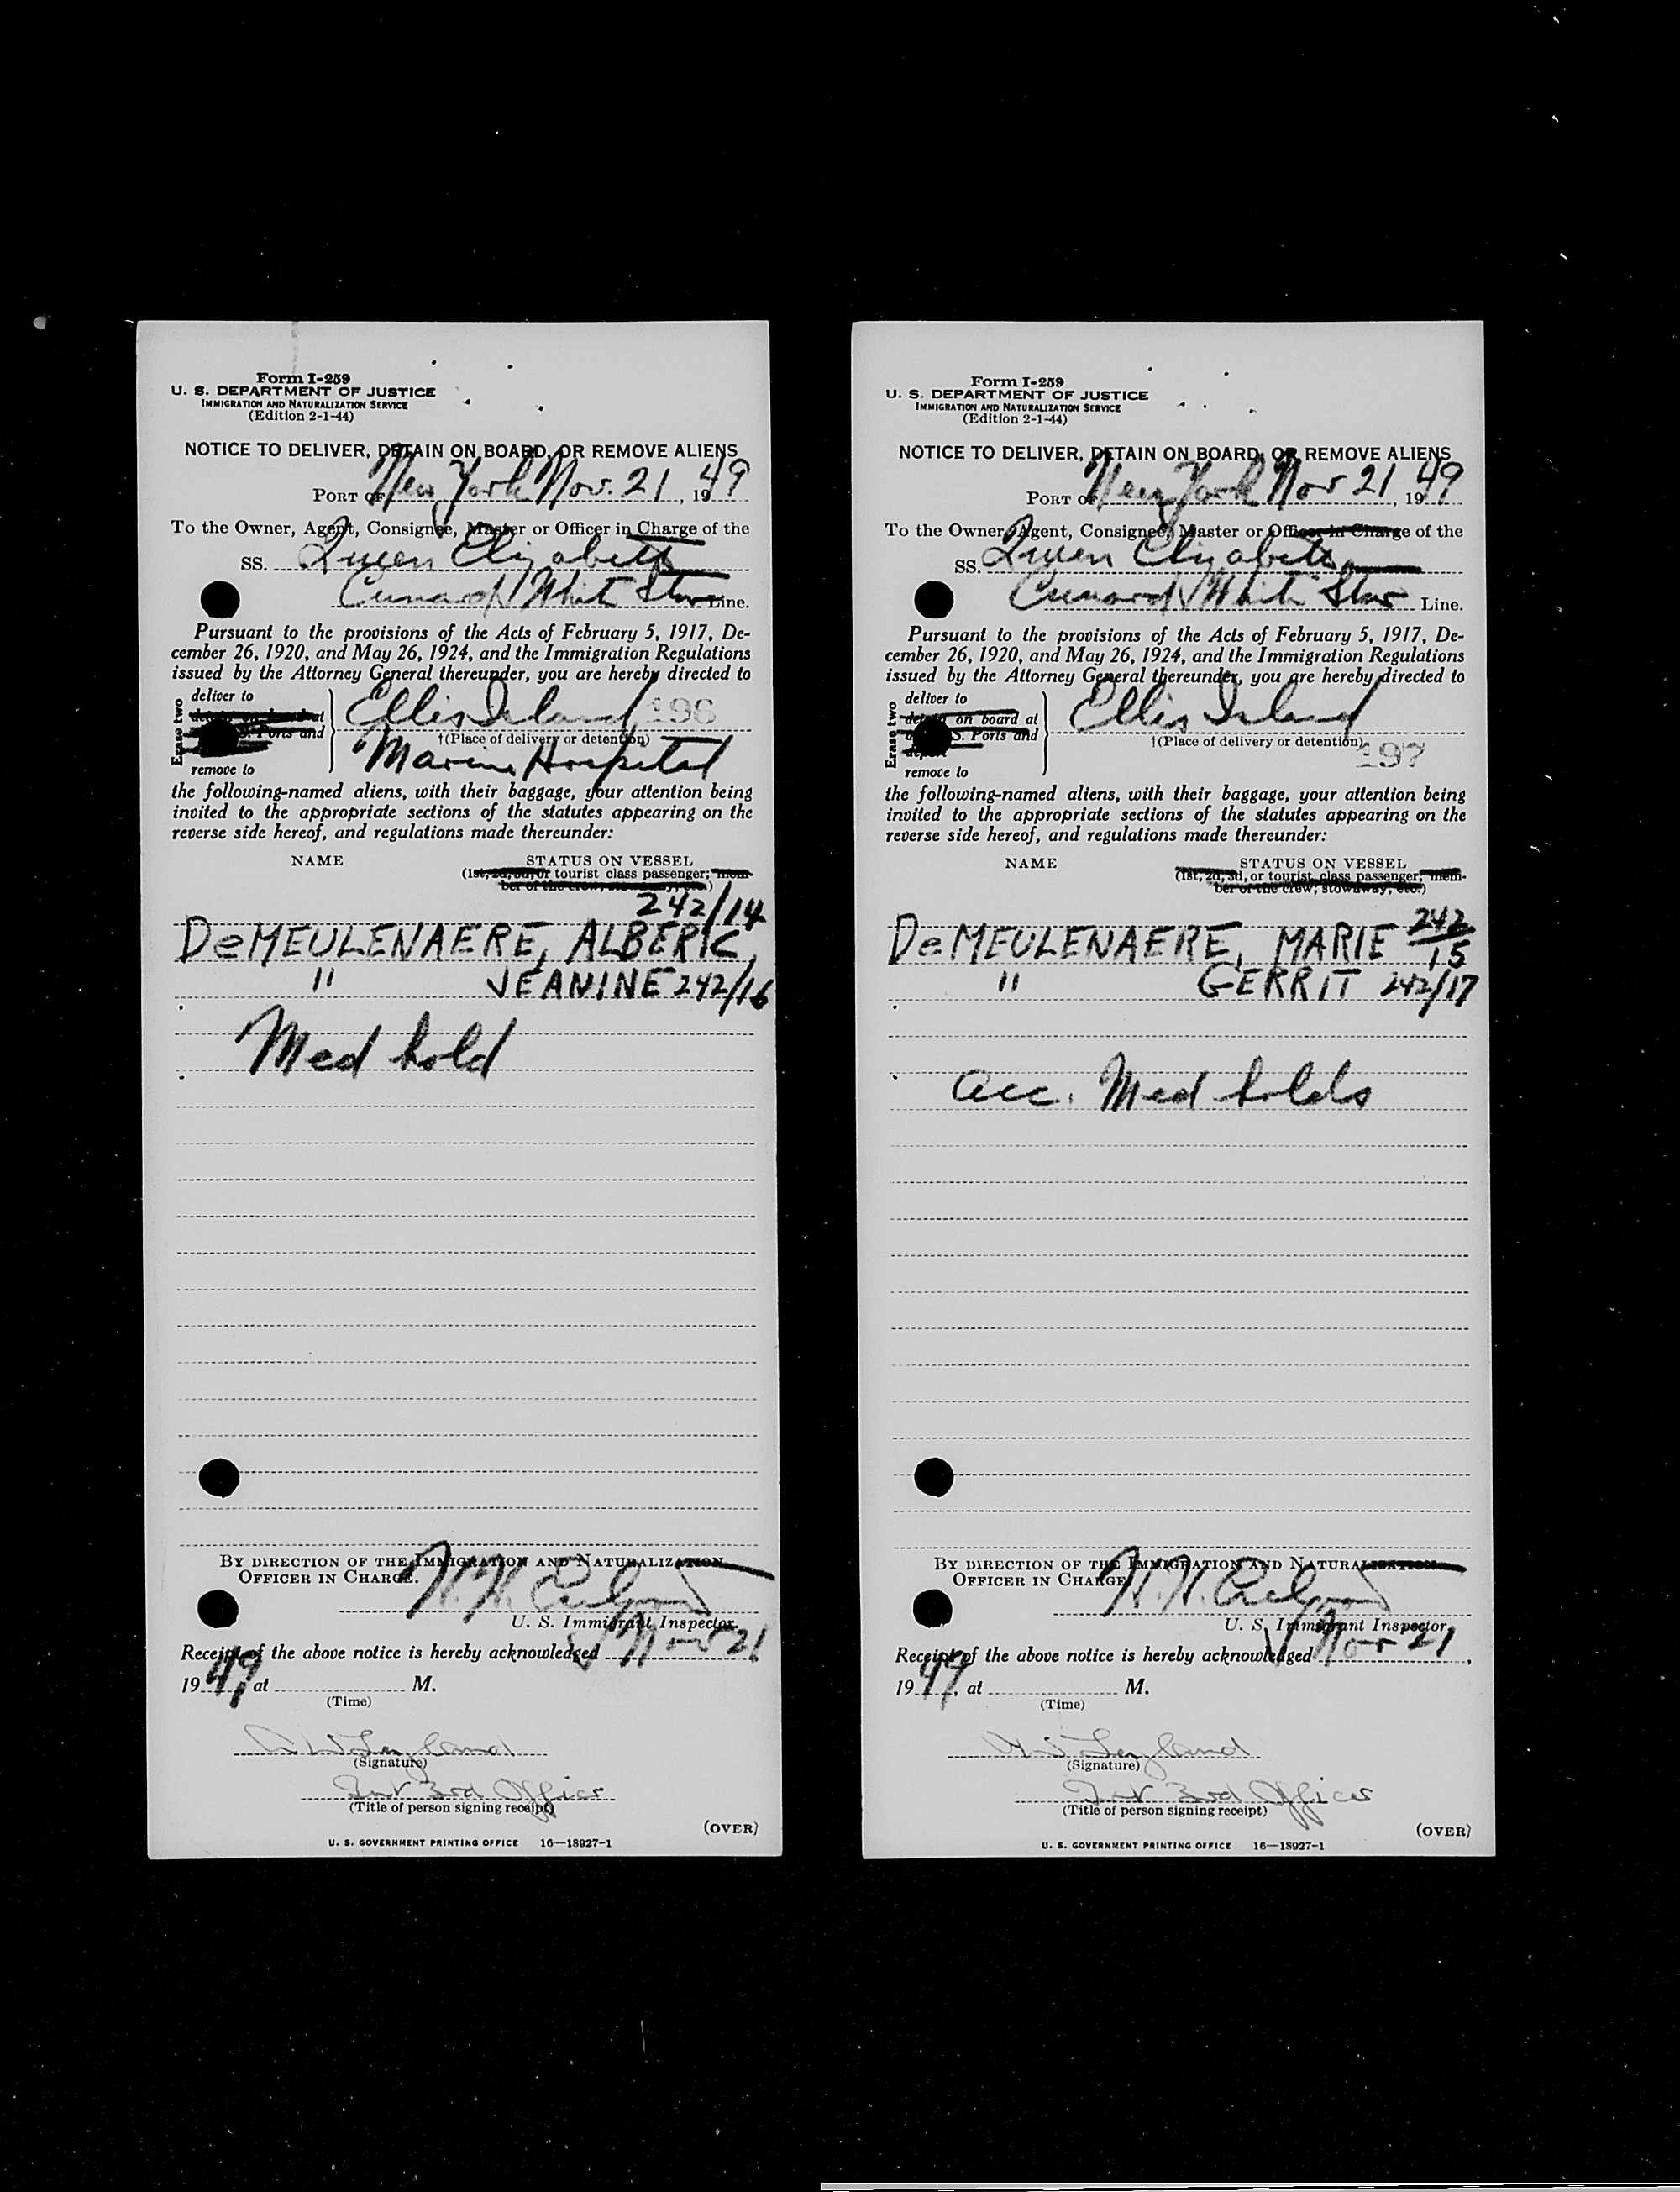 Form I-259
U. S. DEPARTMENT OF JUSTICE
IMMIGRATION AND NATURALIZATION SERVICE
(Edition 2-1-44)
NOTICE TO DELIVER, DETAIN ON BOARD, OR REMOVE ALIENS
PORT OF New York Nov. 21, 1949
To the Owner, Agent, Consignee, Master or Officer in Charge of the
SS. Queen Elizabeth
Cunard White Star Line.
Pursuant to the provisions of the Acts of February 5, 1917, De-
cember 26, 1920, and May 26, 1924, and the Immigration Regulations
issued by the Attorney General thereunder, you are hereby directed to
Erase two
deliver to
at
S. Ports and
remove to
Ellis Island 196
†(Place of delivery or detention)
Marine Hospital
the following-named aliens, with their baggage, your attention being
invited to the appropriate sections of the statutes appearing on the
reverse side hereof, and regulations made thereunder:
NAME STATUS ON VESSEL
(1st, 2d, 3d, or tourist class passenger; mem-
ber of the crew, stowaway, etc.)
242/14
DeMEULENAERE, ALBERIC,
" JEANINE 242/16
Med hold
BY DIRECTION OF THE IMMIGRATION AND NATURALIZATION
OFFICER IN CHARGE.
U. S. Immigrant Inspector.
Receipt of the above notice is hereby acknowledged Nov 21
1949, at M.
(Time)
Leyland
(Signature)
3rd Officer
(Title of person signing receipt)
(OVER)
U. S. GOVERNMENT PRINTING OFFICE 16—18927-1
Form I-259
U. S. DEPARTMENT OF JUSTICE
IMMIGRATION AND NATURALIZATION SERVICE
(Edition 2-1-44)
NOTICE TO DELIVER, DETAIN ON BOARD, OR REMOVE ALIENS
PORT OF New York Nov 21, 1949
To the Owner, Agent, Consignee, Master or Officer in Charge of the
SS. Queen Elizabeth
Cunard White Star Line.
Pursuant to the provisions of the Acts of February 5, 1917, De-
cember 26, 1920, and May 26, 1924, and the Immigration Regulations
issued by the Attorney General thereunder, you are hereby directed to
Erase two
deliver to
detain on board at
S. Ports and
deport
remove to
Ellis Island
†(Place of delivery or detention)
197
the following-named aliens, with their baggage, your attention being
invited to the appropriate sections of the statutes appearing on the
reverse side hereof, and regulations made thereunder:
NAME STATUS ON VESSEL
(1st, 2d, 3d, or tourist class passenger; mem-
ber of the crew, stowaway, etc.)
DeMEULENAERE, MARIE 242/15
" GERRIT 242/17
acc. Med holds
BY DIRECTION OF THE IMMIGRATION AND NATURALIZATION
OFFICER IN CHARGE.
U. S. Immigrant Inspector.
Receipt of the above notice is hereby acknowledged Nov 21,
1949, at M.
(Time)
Leyland
(Signature)
3rd Officer
(Title of person signing receipt)
(OVER)
U. S. GOVERNMENT PRINTING OFFICE 16—18927-1